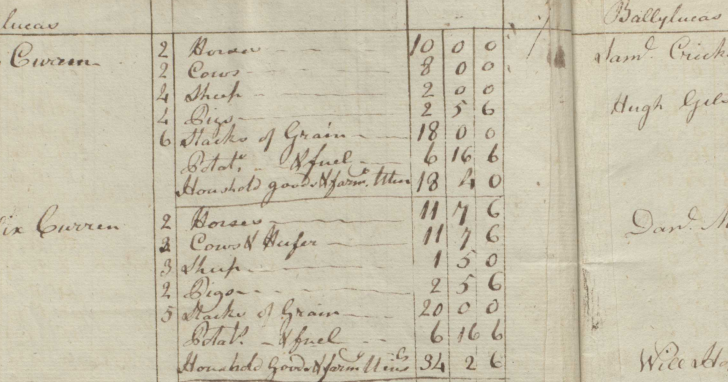 lucas
Curren 2 Horses 10 0 0
2 Cows 8 0 0
4 Sheep 2 0 0
4 Pigs 2 5 6
6 Stacks of Grain 18 0 0
Potats. & fuel 6 16 6
Houshold goods & farmg. Utten 18 4 0
ix Curren 2 Horses 11 7 6
2 Cows & Heifer 11 7 6
3 Sheep 1 5 0
2 Pigs 2 5 6
5 Stacks of Grain 20 0 0
Potats. & fuel 6 16 6
Houshold Goods & farmg. Uttenls 34 2 6
Ballylucas
Saml. Crick
Hugh Gil
Danl. M
Will Ho